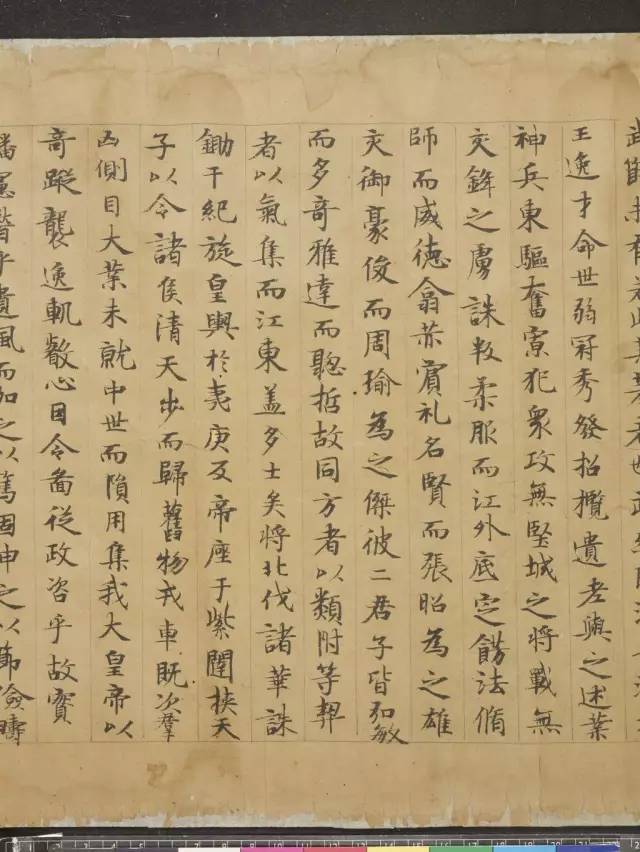 王逸才命世弱冠秀發招攬遺老與之述業
神兵東驅奮寡犯衆攻無堅城之將戰無
交鋒之虜誅叛柔服而江外底定飭法脩
師而威德翕赤賓礼名賢而張昭為之雄
交御豪俊而周瑜為之傑彼二君子皆弘敏
而多奇雅達而聰哲故同方者以類附等契
者以氣集而江東盖多士矣將北伐諸華誅
鋤干紀旋皇輿於夷庚反帝座于紫闥挾天
子以令諸侯清天步而歸舊物戎車既次羣
凶側目大業未就中世而隕用集我大皇帝以
奇蹤襲逸軌叡心因令啚從政咨乎故實
播憲稽乎遺風而加之以篤固申之以節儉疇